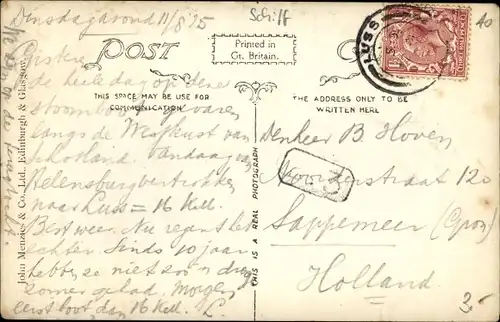 Dinsdagavond 11/8 '25
Schiff
40
POST
C
Printed in
Gt. Britain.
LUSS
THIS SPACE MAY BE USE FOR
COMMUNICATION.
THE ADDRESS ONLY TO BE
WRITTEN HERE
de heele dag op deze
stoomboot gevaren
langs de Westkust van
Schotland. Vandaag van
Helensburg vertrokken
naar Luss = 16 Kell.
Best weer. Nu regent het
echter. Sinds 10 jaar
hebben ze niet zoo'n droge
zomer gehad. Morgen
eerst boot, dan 16 Kell. L.
Denheer B Hoven
Noorderstraat 120
Sappemeer (Gron)
Holland
3-
THIS IS A REAL PHOTOGRAPH
John Menzies & Co., Ltd., Edinburgh & Glasgow.